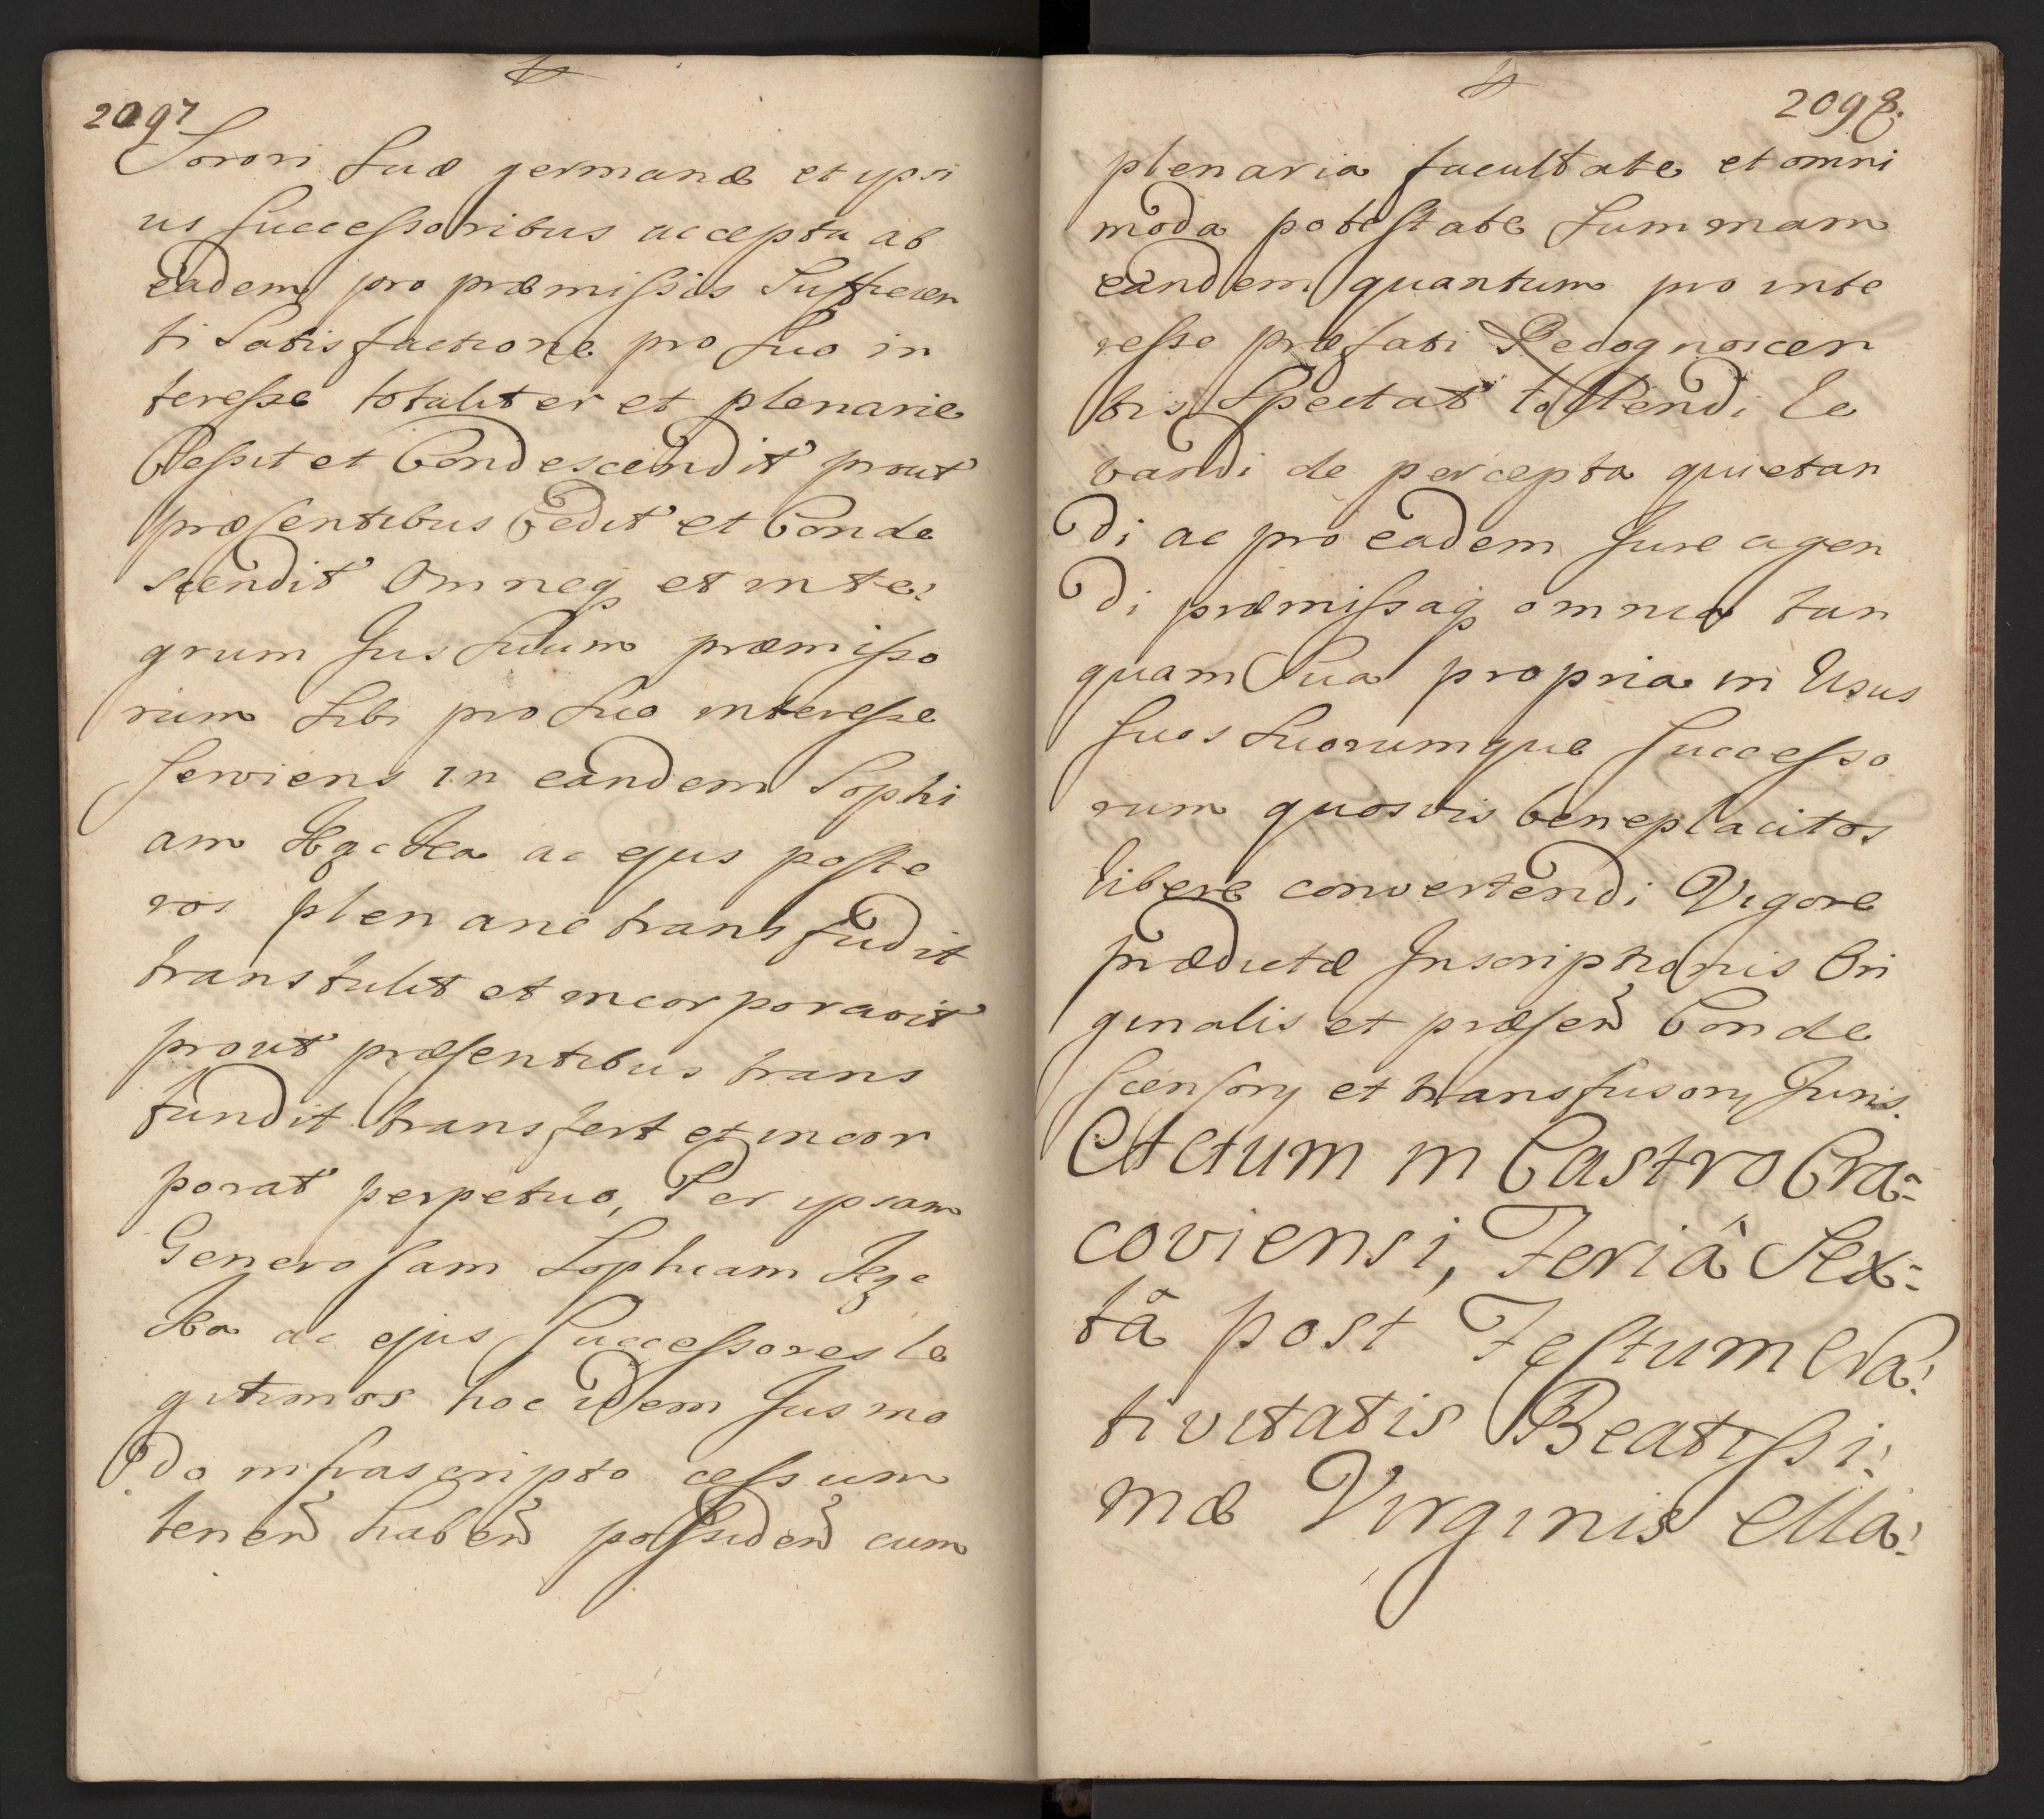 2097
Sorori suæ germanæ et ipsi
us successoribus accepta ab
eadem pro præmissis Sufficien
ti Satisfactione pro suo in
teresse totaliter et plenarie
Cessit et Condescendit prout
præsentibus Cedit et Conde
scendit Omneq et inte:
grum Jus suum præmisso
rum sibi pro suo interesse
serviens in eandem Sophi
am ac ejus poste
ros plenarie transfudit
transtulit et incorporavit
prout præsentibus trans
fundit transfert et incor
porat perpetuo, Per ipsam
Generosam Sophiam
ac ejus Successores le
gitimos hoc idem Jus mo
do infrascripto cessum
tenen haben possiden cum
2098.
plenaria facultate et omni
moda potestate summam
eandem quantum pro inte
resse præfati Recognoscen
tis Spectat tollendi le
vandi de percepta quietan
di ac pro eadem Jure agen
di præmissaq omnia tan
quam Sua propria in Usus
suos suorumque successo
rum quosvis beneplacitos
libere convertendi Vigore
prædictæ Inscriptionis Ori
ginalis et præsen Conde
scensorÿ et transfusorÿ Juris.
Actum in Castro Cra=
coviensi, Feriâ Sex=
tâ post Festum Na:
tivitatis Beatissi:
mæ Virginis Ma: